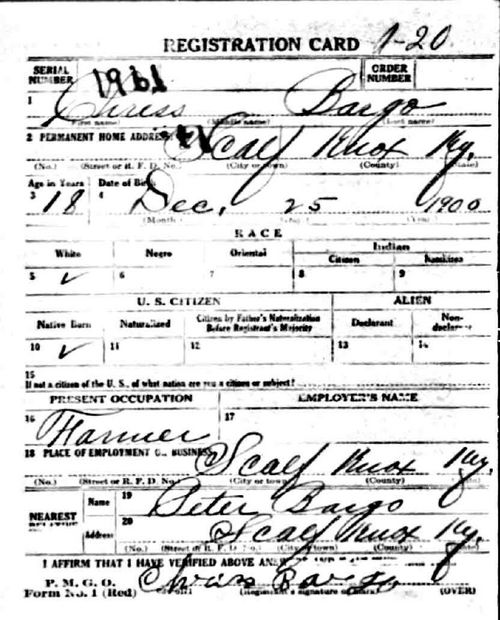 REGISTRATION CARD 1-20
SERIAL NUMBER 1961 ORDER NUMBER
1 Chress Bargo
(First name) (Middle name) (Last name)
2 PERMANENT HOME ADDRESS Scalf Knox Ky.
(No.) (Street or R. F. D. No.) (City or town) (County) (State)
Age in Years Date of Birth
3 18 4 Dec. 25 1900
(Month) (Year)
RACE
White Negro Oriental Indian
Citizen
5 ✓ 6 7 8 9
U. S. CITIZEN ALIEN
Native Born Naturalized Citizen by Father's Naturalization Before Registrant's Majority Declarant Non-declarant
10 ✓ 11 12 13 14
15
If not a citizen of the U. S., of what nation are you a citizen or subject?
PRESENT OCCUPATION EMPLOYER'S NAME
16 Farmer 17
18 PLACE OF EMPLOYMENT OR BUSINESS Scalf Knox Ky.
(No.) (Street or R. F. D. No.) (City or town) (County)
NEAREST Name 19 Peter Bargo
Address 20 Scalf Knox Ky.
(No.) (Street or R. F. D. No.) (City or town) (County) (State)
I AFFIRM THAT I HAVE VERIFIED ABOVE
P. M. G. O. Chriss Bargo
Form No. 1 (Red) (Registrant's signature or mark) (OVER)